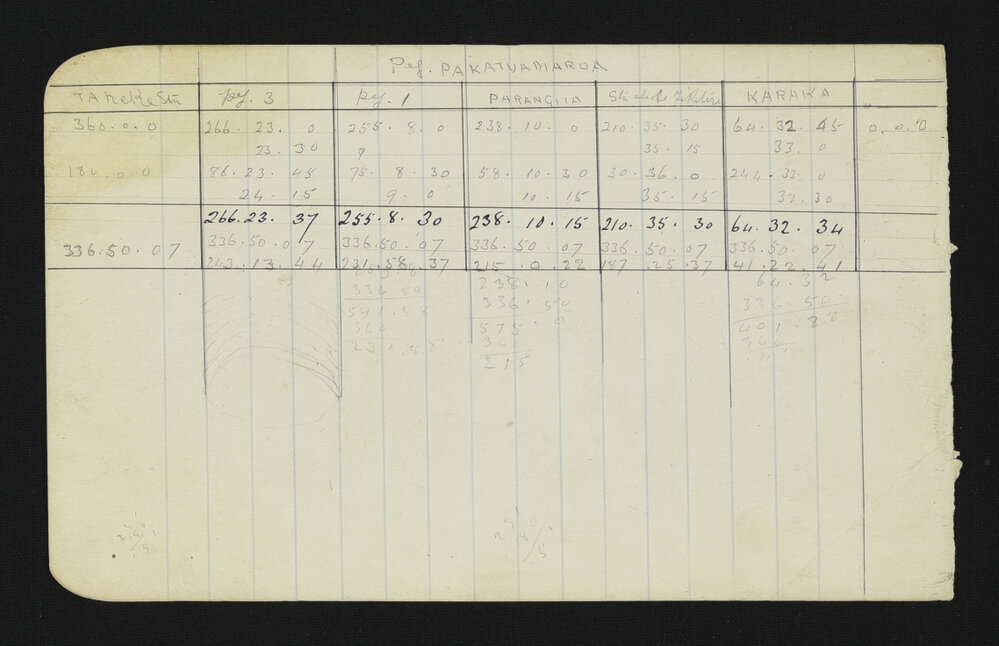 Peg. PAKATUAMARUA
TAhekeStn peg. 3 peg. 1 PARANGIIA KARAKA
360.0.0 266. 23. 0 255. 8. 0 238. 10. 0 210. 35. 30 64. 32. 45 0.0.0
23. 30 9 35. 15 33. 0
180.0.0 86. 23. 45 75. 8. 30 58. 10. 30 30. 36. 0 244. 33. 0
24. 15 9. 0 10. 15 35. 15 32. 30
266. 23. 37 255. 8. 30 238. 10. 15 210. 35. 30 64. 32. 34
336. 50. 07 336. 50. 07 336. 50. 07 336. 50. 07 336. 50. 07 336. 50. 07
243. 13. 44 231. 58. 37 215. 0. 22 187. 25. 37 41. 22. 41
238. 10 64. 32
336. 50 336. 50 336. 50
591. 58 575. 0 401. 22
360 360 360
231. 58 215 41